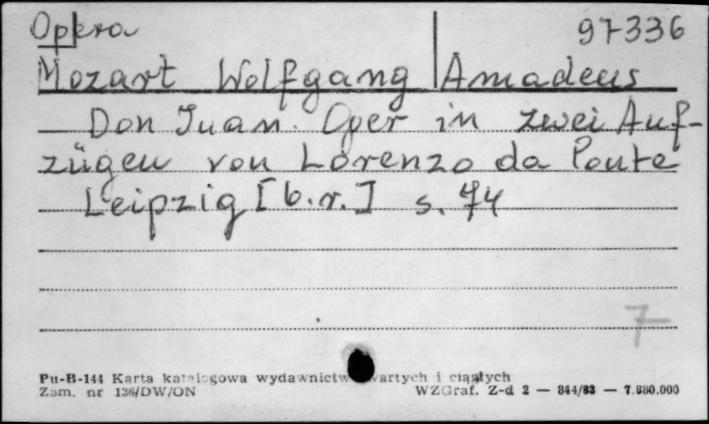 Opera 97336
Mozart Wolfgang Amadeus
Don Juan. Oper in zwei Auf-
zügen von Lorenzo da Ponte
Leipzig [b.r.] s. 74
7
Pu-B-144 Karta katalogowa wydawnictw zwartych i ciągłych
Zam. nr 136/DW/ON WZGraf. Z-d 2 — 344/83 — 7.880.000